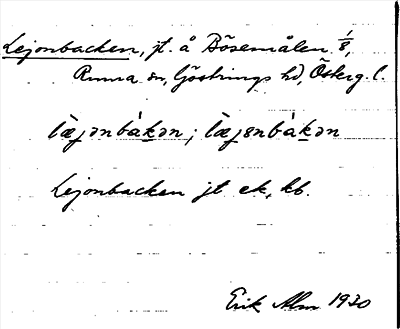 Lejonbacken, jt. å Bösemålen 1/8,
Rumma sn, Göstrings hd, Österg. l.
læjənbàkən; læjɛnbàkən
Lejonbacken jt ek, kb.
Erik Alm 1930